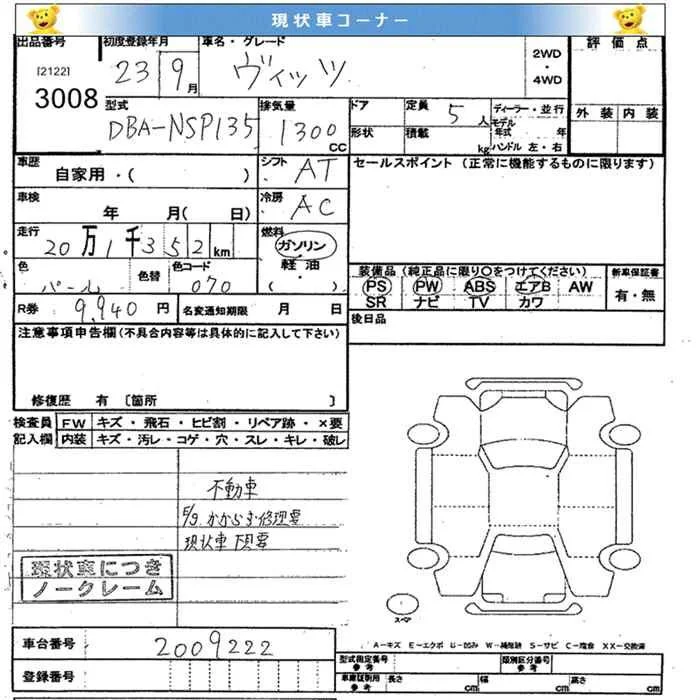 現状車コーナー
出品番号 初度登録年月 車名・グレード 2WD・4WD 評価点
[2122] 3008 23 9月 ヴィッツ
型式 排気量 ドア 定員 5人 ディーラー・並行
DBA-NSP135 1300 CC 形状 積載 kg モデル年式 年 ハンドル 左・右 外装 内装
車歴 自家用・( ) シフト AT セールスポイント(正常に機能するものに限ります)
車検 年 月( 日) 冷房 AC
走行 20万1千352km 燃料 ガソリン
色 パール 色替 色コード 070 軽油・( )
装備品(純正品に限り○をつけてください) 新車保証書
PS PW ABS エアB AW 有・無
SR ナビ TV カワ
R券 9,940円 名変通知期限 月 日 後日品
注意事項申告欄(不具合内容等は具体的に記入して下さい)
修復歴 有〔箇所 〕
検査員 FW キズ・飛石・ヒビ割・リペア跡・×要
記入欄 内装 キズ・汚レ・コゲ・穴・スレ・キレ・破レ
不動車
5/9 かならず修理要
現状車
現状車につき
ノークレーム
スペア
A-キズ E-エクボ U-凹み W-補修跡 S-サビ C-腐食 XX-交換済
車台番号 2009222
型式指定番号 参考 類別区分番号 参考
登録番号 車庫証明用 参考 長さ cm 幅 cm 高さ cm